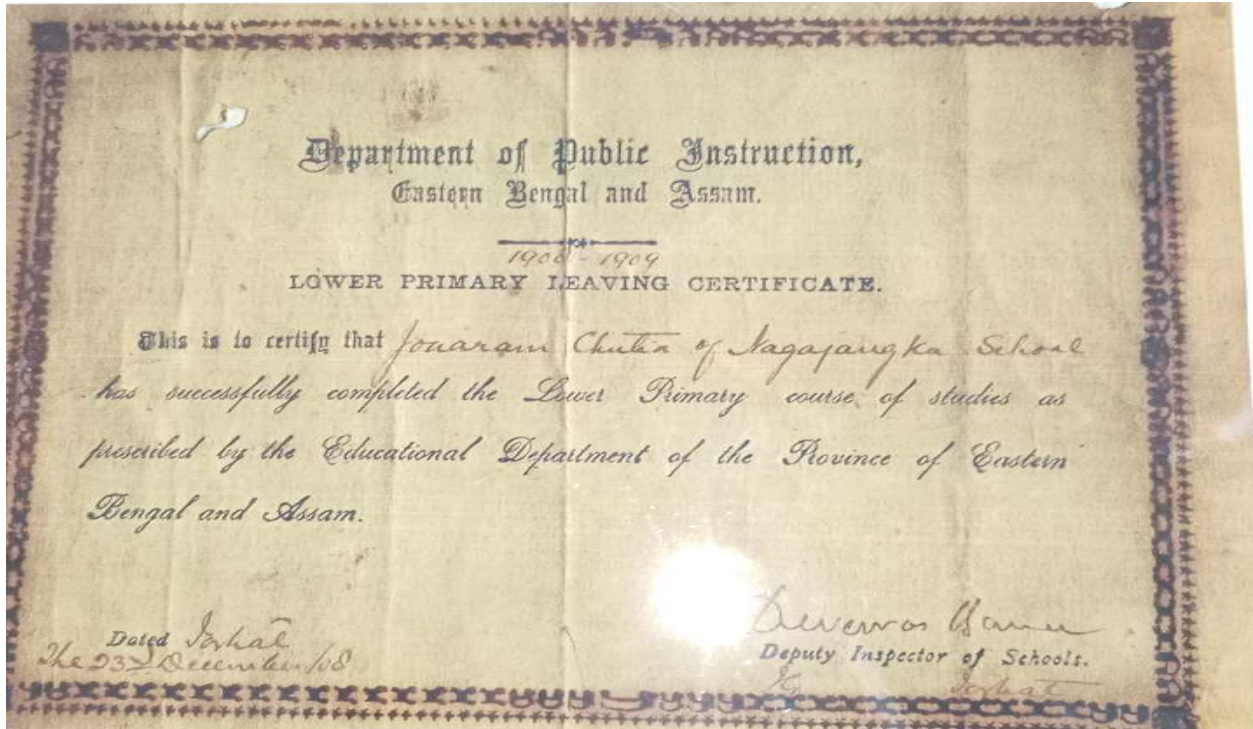 Department of Public Instruction,
Eastern Bengal and Assam.
1908 - 1909
LOWER PRIMARY LEAVING CERTIFICATE.
This is to certify that Jonaram Chutia of Nagajangka School
has successfully completed the Lower Primary course of studies as
prescribed by the Educational Department of the Province of Eastern
Bengal and Assam.
Dated Jorhat
The 23rd December/08
Deputy Inspector of Schools.
Jorhat